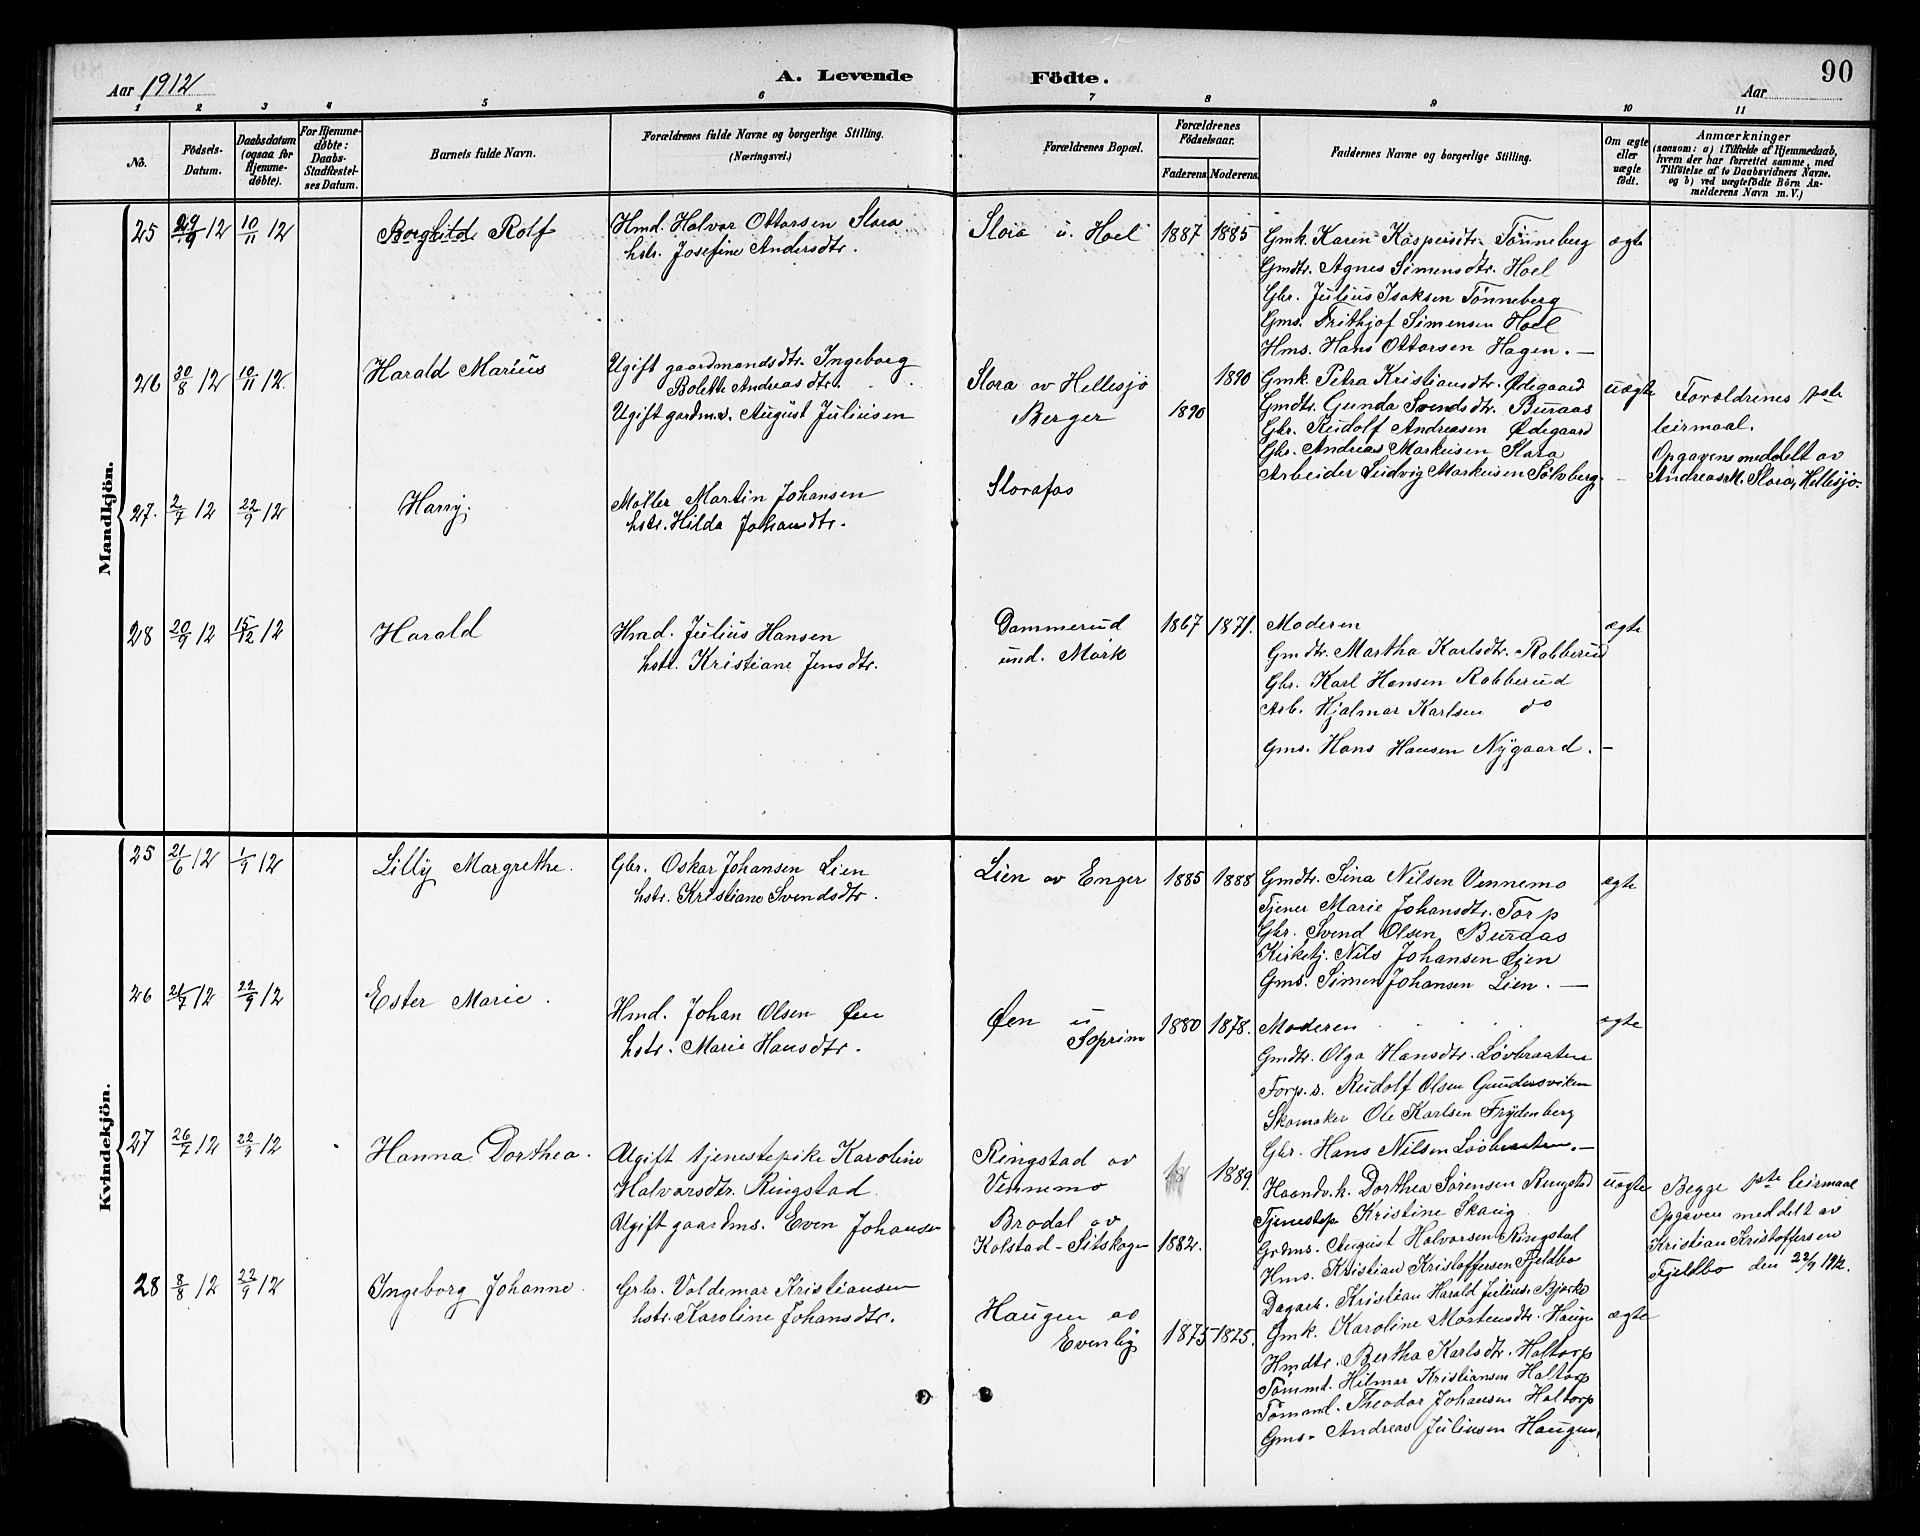 Aar 1912
A. Levende
Födte.
90
Aar
1 2 3 4 5 6 7 8 9 10 11
No.
Födsels-
Datum.
Daabsdatum
(ogsaa for
Hjemme-
døbte).
For Hjemme-
døbte:
Daabs-
Stadfæstel-
ses Datum.
Barnets fulde Navn.
Forældrenes fulde Navne og borgerlige Stilling.
(Næringsvei.)
Forældrenes Bopæl.
Forældrenes
Födselsaar.
Faderens. Moderens.
Faddernes Navne og borgerlige Stilling.
Om ægte
eller
uægte
født.
Anmærkninger
(saasom: a) i Tilfælde af Hjemmedaab,
hvem der har forrettet samme, med
Tilføielse af to Daabsvidners Navne.
og b) ved uægtefödte Börn An-
melderens Navn m. V.)
Mandkjön.
25 29/9 12 10/11 12 Borghild Rolf
Hmd. Halvor Ottersen Slora
hstr. Josefine Andersdtr.
Slora u. Hoel 1887 1885
Gmk. Karen Kaspersdtr. Tønneberg
Gmdtr. Agnes Simensdtr. Hoel
Gbr. Julius Isaksen Tønneberg
Gms. Frithjof Simensen Hoel
Hms. Hans Ottersen Hagen. —
ægte
26 30/8 12 10/11 12. Harald Marius
Ugift gaardmandsdtr. Ingeborg
Bolette Andreasdtr.
Ugift gardm.s. August Juliusen
Slora av Hellesjø 1890
Berger 1890
Gmk. Petra Kristiansdtr. Ødegaard
Gmdtr. Gunda Svendsdtr. Buraas
Gbr. Rudolf Andreasen Ødegaard
Gbr. Andreas Markusen Slora
Arbeider Ludvig Markusen Sölvberg. —
uægte
Forældrenes 1ste
leirmaal.
Opgaven meddelt av
Andreas M. Slora, Hellesjø.
27. 2/7 12 22/9 12 Harry.
Møller Martin Johansen
hstr. Hilda Johansdtr.
Slorafos
28 20/9 12 15/12 12 Harald
Hmd. Julius Hansen
hstr. Kristiane Jensdtr.
Dammerud
und. Mørk
1867 1871.
Moderen
Gmdtr. Martha Karlsdtr. Robberud
Gbr. Karl Hansen Robberud
Arb. Hjalmar Karlsen do
Gms. Hans Hansen Nygaard. —
ægte
Kvindekjön.
25 21/6 12 1/9 12 Lilly Margrethe.
Gbr. Oskar Johansen Lien
hstr. Kristiane Svendsdtr.
Lien av Enger 1885 1888
Gmdtr. Sina Nilsen Vennemo
Tjener Marie Johansdtr. Torp
Gbr. Svend Olsen Buraas
Kirketj. Nils Johansen Lien
Gms. Simen Johansen Lien. —
ægte
26 21/7 12 22/9 12 Ester Marie.
Hmd. Johan Olsen Øen
hstr. Marie Hansdtr.
Øen u
Soprim
1880 1878.
Moderen
Gmdtr. Olga Hansdtr. Løvbraaten
Forp.s. Rudolf Olsen Gundersviken
Skomaker Ole Karlsen Frydenberg
Gbr. Hans Nilsen Løvbraaten. —
ægte
27 26/7 12 22/9 12 Hanna Dorthea.
Ugift tjenestepike Karoline
Halvorsdtr. Ringstad
Ugift gaardms. Even Johansen
Ringstad av
Vennemo
18 1889.
Brodal av
Kolstad - Sitskogen 1882.
Haandv.k. Dorthea Sørensen Ringstad
Tjenestep. Kristine Skaug
Grdms. August Halvorsen Ringstad
Hms. Kristian Kristoffersen Fjeldbo
Dagarb. Kristian Harald Julius. Bjerke
uægte
Begge 1ste leirmaal
Opgaven meddelt av
Kristian Kristoffersen
Fjeldbo den 22/9 1912.
28 8/8 12 22/9 12 Ingeborg Johanne.
Grbr. Valdemar Kristiansen
hstr. Karoline Johansdtr.
Haugen av
Evenby
1875 1875.
Gmk. Karoline Mortensdtr. Haugen
Hmdtr. Bertha Karlsdtr. Haltorp
Tömmd. Hilmar Kristiansen Haltorp
Tömand. Theodor Johansen Haltorp
Gms. Andreas Juliusen Haugen.
ægte